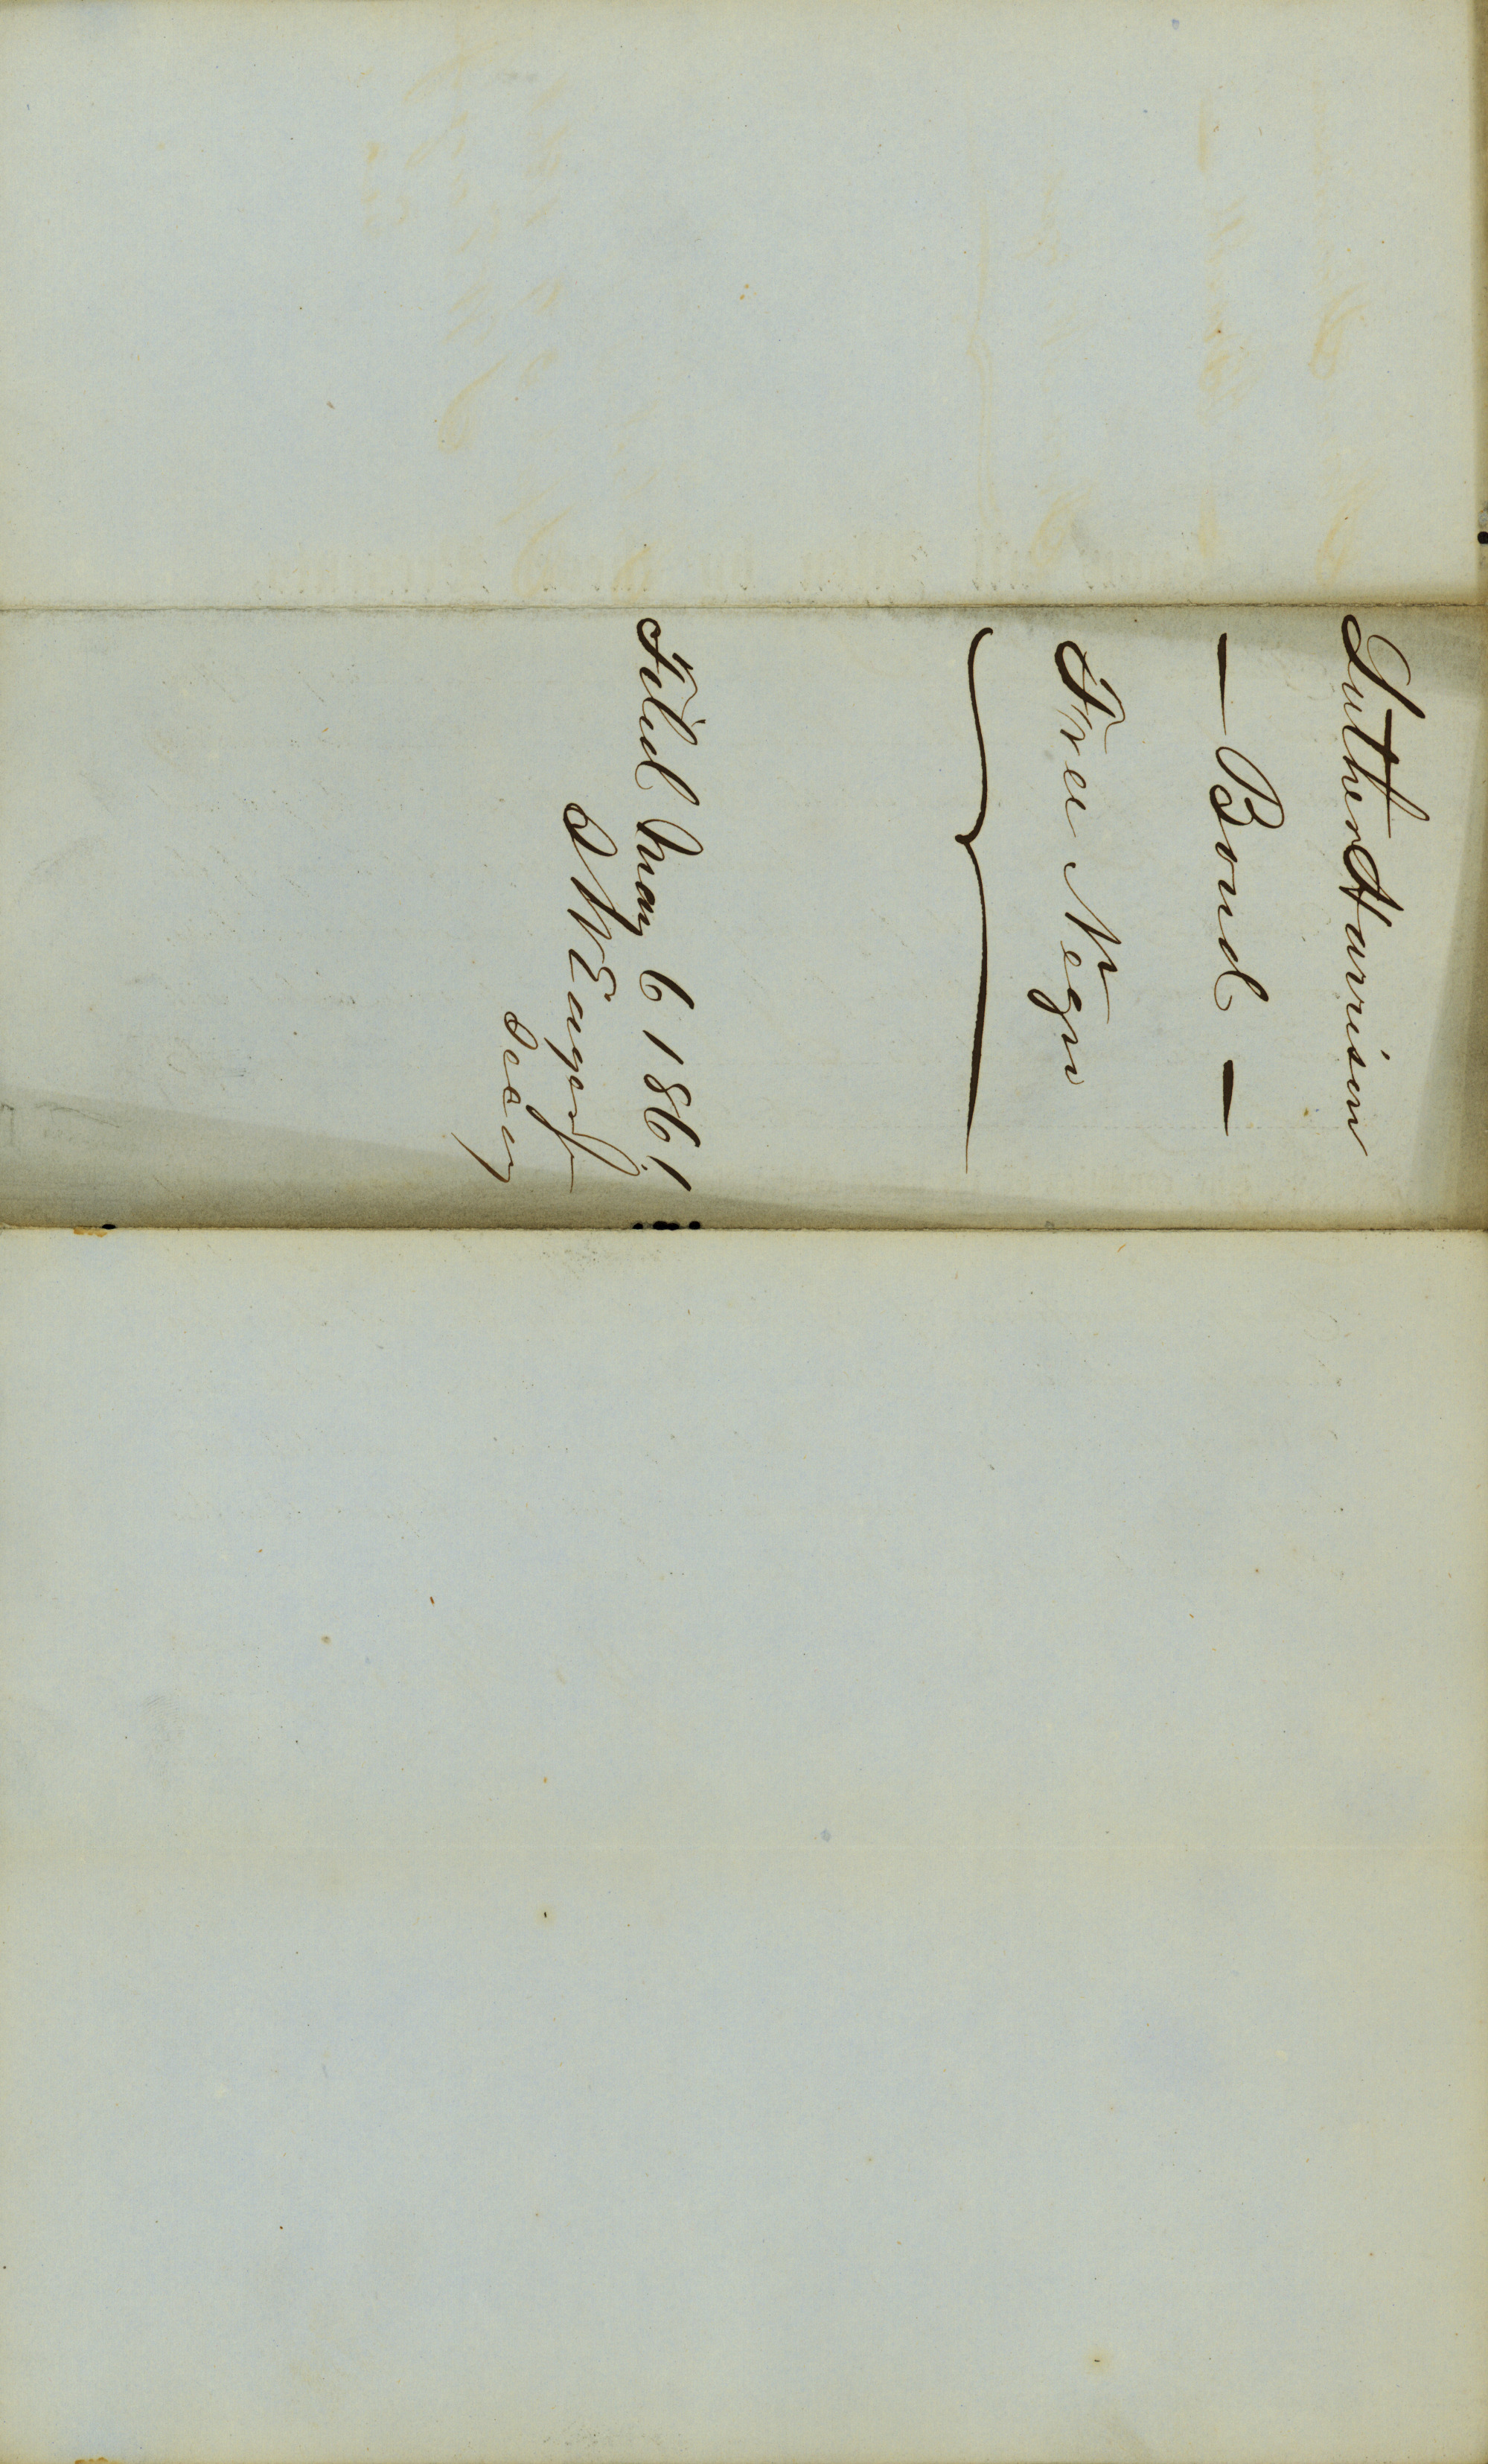 Luther Harrison
— Bond —
Free Negro
Filed May 6 1861
S W Eager Jr
Secy